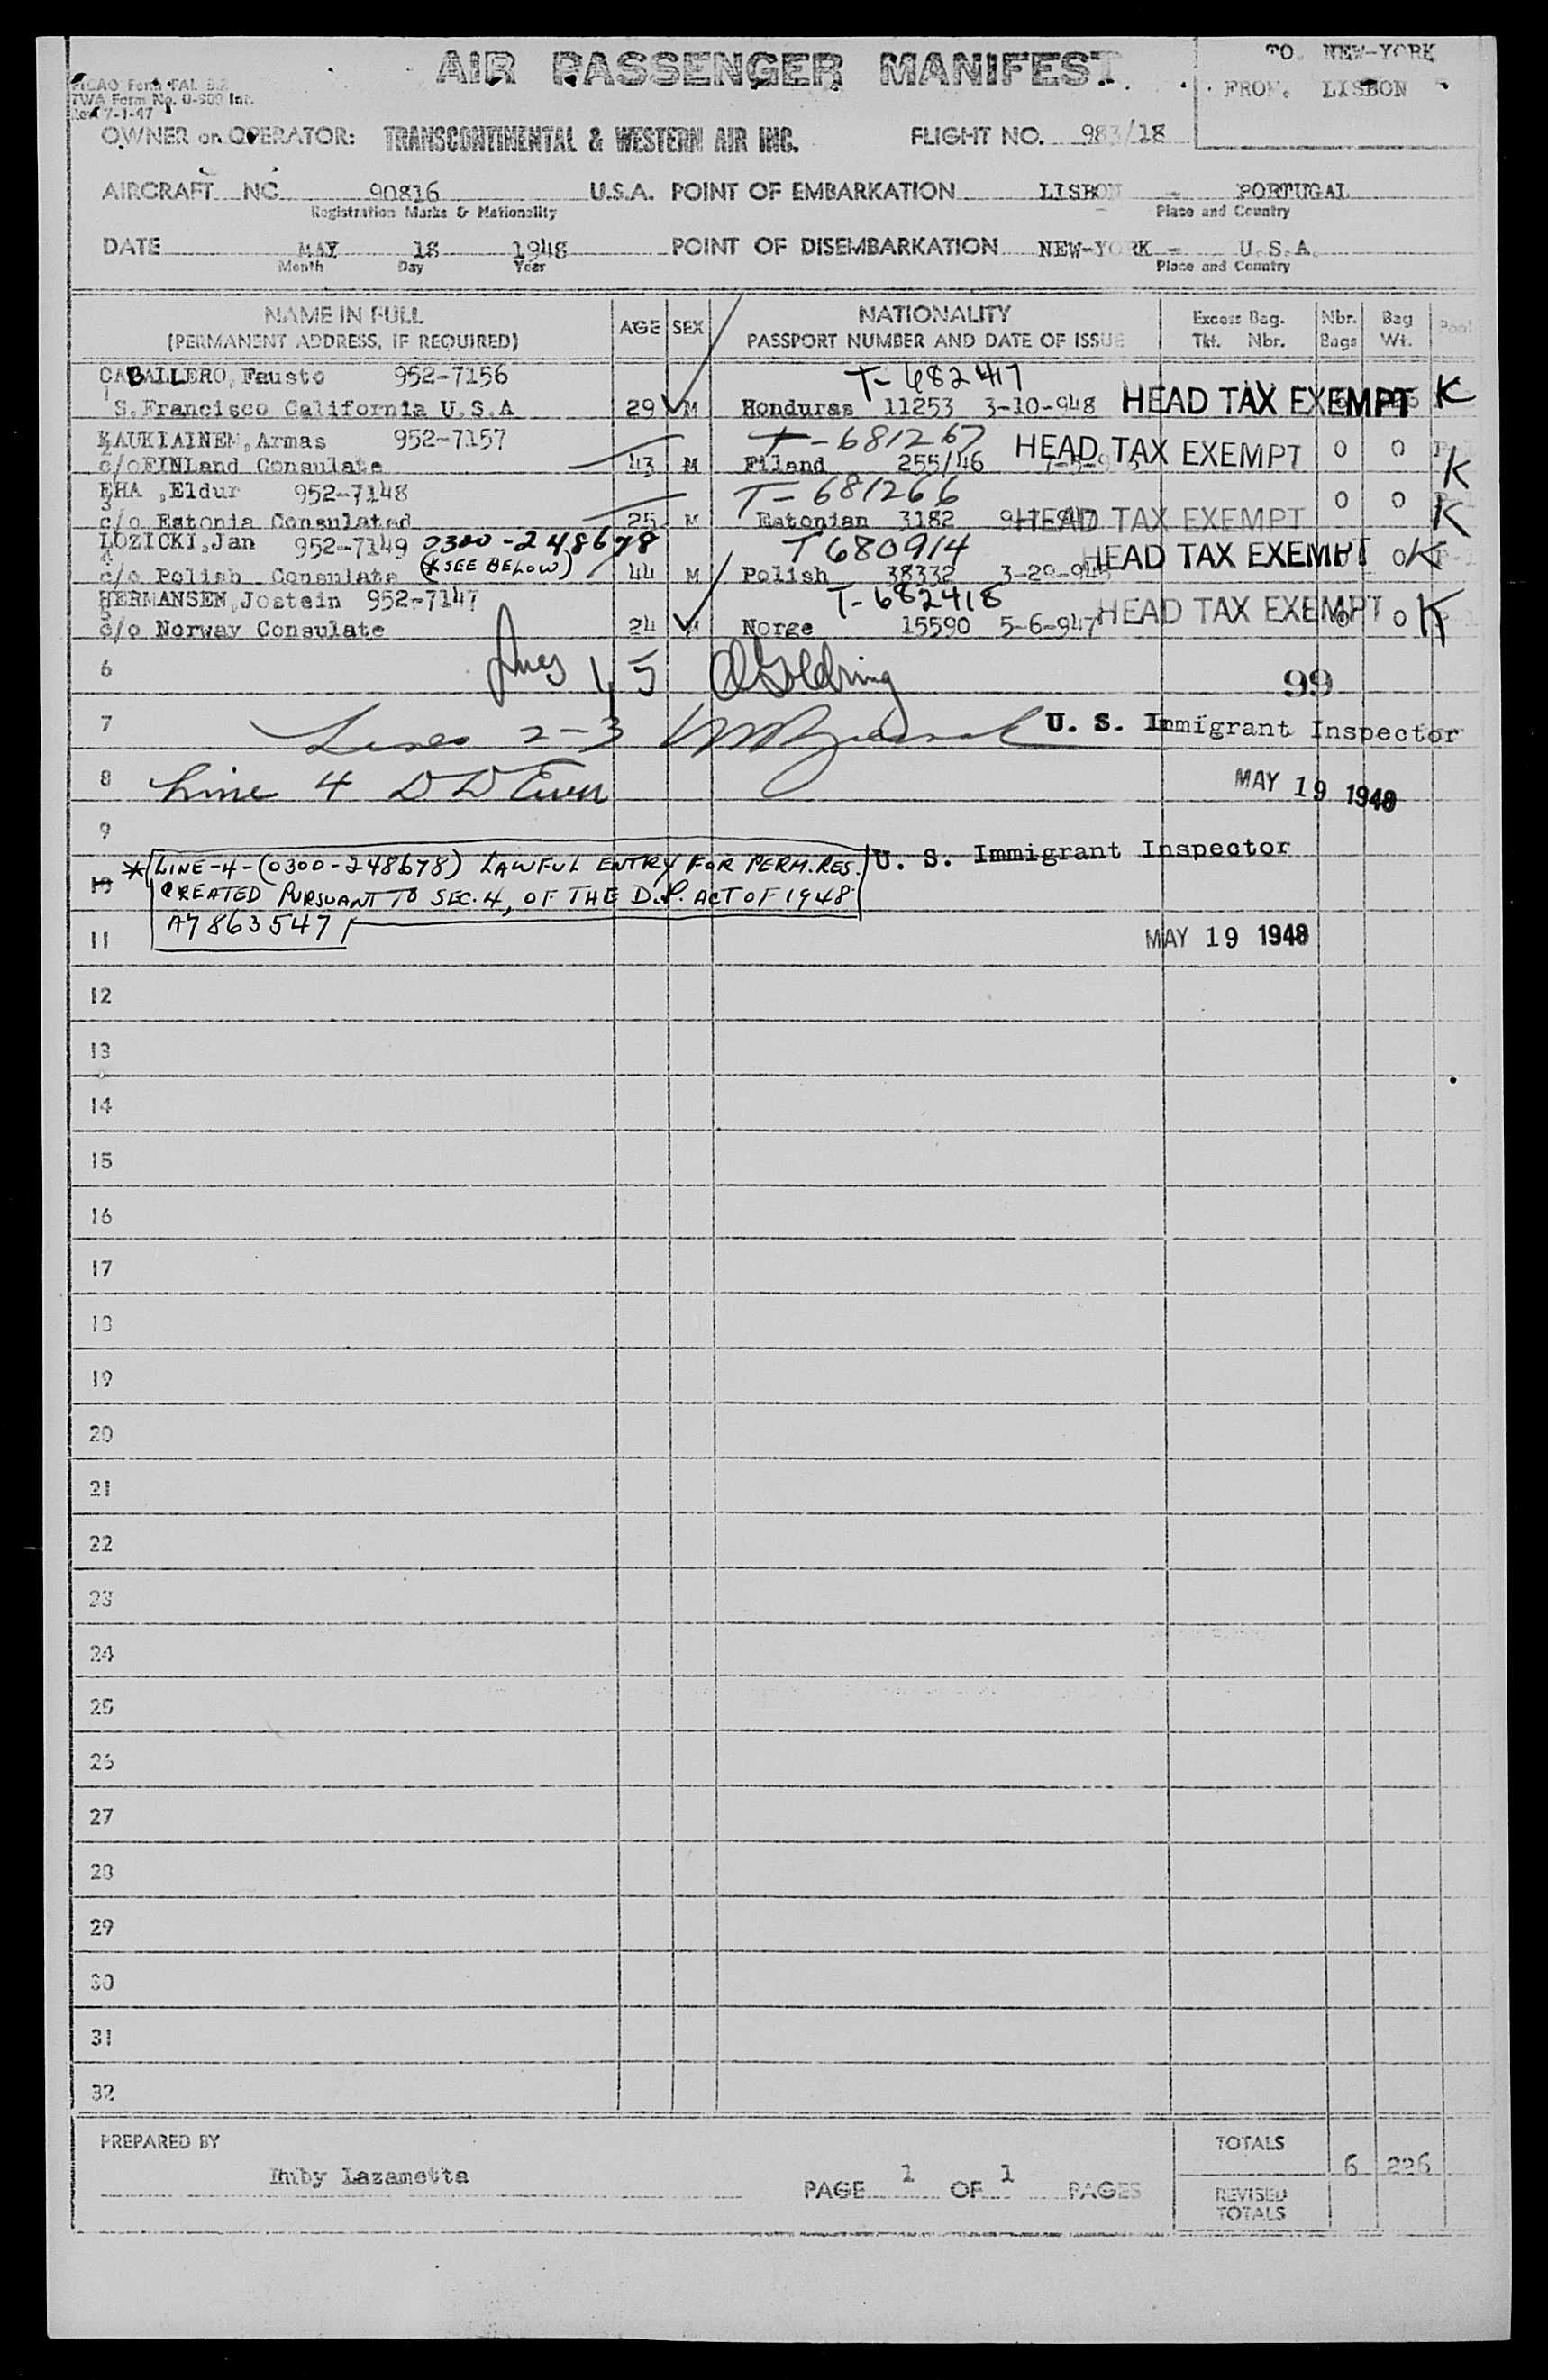 AIR PASSENGER MANIFEST
TO. NEW-YORK
FROM. LISBON
ICAO Form FAL
TWA Form No. 0-900 Int.
7-1-47
OWNER or OPERATOR: TRANSCONTINENTAL & WESTERN AIR INC. FLIGHT NO. 983/18
AIRCRAFT NO 90816 U.S.A. POINT OF EMBARKATION LISBON - PORTUGAL
Registration Marks & Nationality Place and Country
DATE MAY 18 1948 POINT OF DISEMBARKATION NEW-YORK - U.S.A.
Month Day Year Place and Country
NAME IN FULL AGE SEX NATIONALITY Excess Bag. Nbr. Bag Pool
(PERMANENT ADDRESS, IF REQUIRED) PASSPORT NUMBER AND DATE OF ISSUE Tkt. Nbr. Bags Wt.
CABALLERO, Fausto 952-7156 T-682417
1 S.Francisco California U.S.A 29 M Honduras 11253 3-10-948 HEAD TAX EXEMPT K
KAUKIAINEN, Armas 952-7157 T-681267
2 c/o FINLand Consulate 43 M Filand 255/46 HEAD TAX EXEMPT 0 0 K
EHA ,Eldur 952-7148 T-681266
3 c/o Estonia Consulated 25 M Estonian 3182 HEAD TAX EXEMPT 0 0 K
LOZICKI, Jan 952-7149 0300-248678 T 680914
4 c/o Polish Consulate (*SEE BELOW) 44 M Polish 38332 3-29-948 HEAD TAX EXEMPT 0 K
HERMANSEN, Jostein 952-7147 T-682418
5 c/o Norway Consulate 24 M Norge 15590 5-6-947 HEAD TAX EXEMPT 0 0 K
6 1, 5 99
7 Lines 2-3 U. S. Immigrant Inspector
8 Line 4 MAY 19 1948
9
U. S. Immigrant Inspector
*LINE-4-(0300-248678) LAWFUL ENTRY FOR PERM. RES.
10 CREATED PURSUANT TO SEC. 4, OF THE D.P. ACT OF 1948
A7863547
11 MAY 19 1948
12
13
14
15
16
17
18
19
20
21
22
23
24
25
26
27
28
29
30
31
32
PREPARED BY TOTALS 6 226
Ruby Lazametta PAGE 1 OF 1 PAGES
REVISED
TOTALS